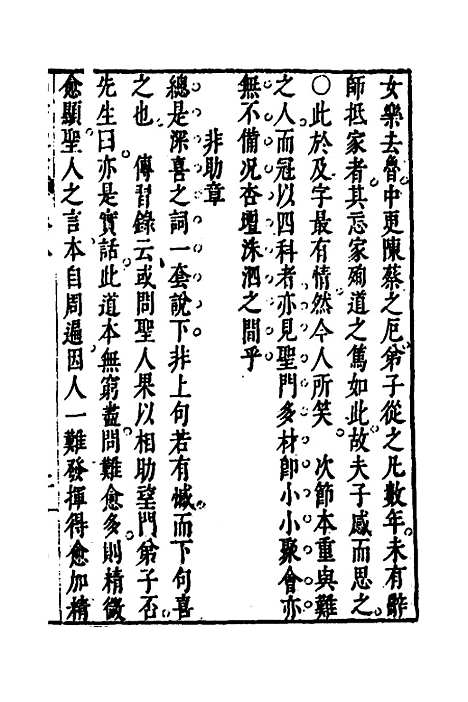 女樂去魯中更陳蔡之厄弟子從之凡數年未有辭
師抵家者其忘家殉道之篤如此故夫子感而思之
○此於及字最有情然今人所笑　次節本重與難
之人而冠以四科者亦見聖門多材卽小小聚會亦
無不備况杏壇洙泗之間乎
非助章
總是深喜之詞一套說下非上句若有憾而下句喜
之也　傳習錄云或問聖人果以相助望門弟子否
先生曰亦是實話此道本無窮盡問難愈多則精微
愈顯聖人之言本自周遍因人一難發揮得愈加精